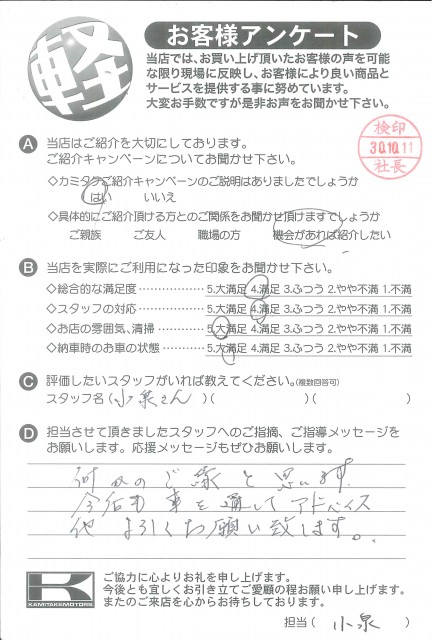 軽
お客様アンケート
当店では、お買い上げ頂いたお客様の声を可能
な限り現場に反映し、お客様により良い商品と
サービスを提供する事に努めています。
大変お手数ですが是非お声をお聞かせ下さい。
検印
30.10.11
社長
A 当店はご紹介を大切にしております。
ご紹介キャンペーンについてお聞かせ下さい。
◇カミタケご紹介キャンペーンのご説明はありましたでしょうか
はい いいえ
◇具体的にご紹介頂ける方とのご関係をお聞かせ頂けますでしょうか
ご親族 ご友人 職場の方 機会があれば紹介したい
B 当店を実際にご利用になった印象をお聞かせ下さい。
◇総合的な満足度 …………… 5.大満足 4.満足 3.ふつう 2.やや不満 1.不満
◇スタッフの対応 …………… 5.大満足 4.満足 3.ふつう 2.やや不満 1.不満
◇お店の雰囲気、清掃 ……… 5.大満足 4.満足 3.ふつう 2.やや不満 1.不満
◇納車時のお車の状態 ……… 5.大満足 4.満足 3.ふつう 2.やや不満 1.不満
C 評価したいスタッフがいれば教えてください。(複数回答可)
スタッフ名 (小泉さん )( )( )
D 担当させて頂きましたスタッフへのご指摘、ご指導メッセージを
お願いします。応援メッセージもぜひお願いします。
何かのご縁と思います。
今后も車を通してアドバイス
他 よろしくお願い致します。
K
KAMITAKEMOTORS
ご協力に心よりお礼を申し上げます。
今後とも宜しくお引き立てご愛顧の程お願い申し上げます。
またのご来店を心からお待ちしております。
担当 ( 小泉 )